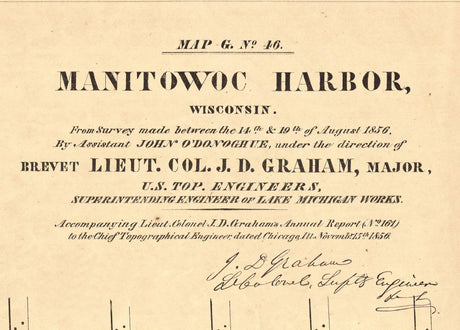 MAP G. No 46.
MANITOWOC HARBOR,
WISCONSIN.
From Survey made between the 14th & 19th of August 1856.
By Assistant JOHN O'DONOGHUE, under the direction of
BREVET LIEUT. COL. J. D. GRAHAM, MAJOR,
U.S. TOP. ENGINEERS,
SUPERINTENDING ENGINEER OF LAKE MICHIGAN WORKS.
Accompanying Lieut. Colonel J. D. Graham's Annual Report (No 161)
to the Chief Topographical Engineer, dated Chicago, Ill. Novembr 15th 1856.
J. D Graham
Lt Colonel, Supt'g Engineer